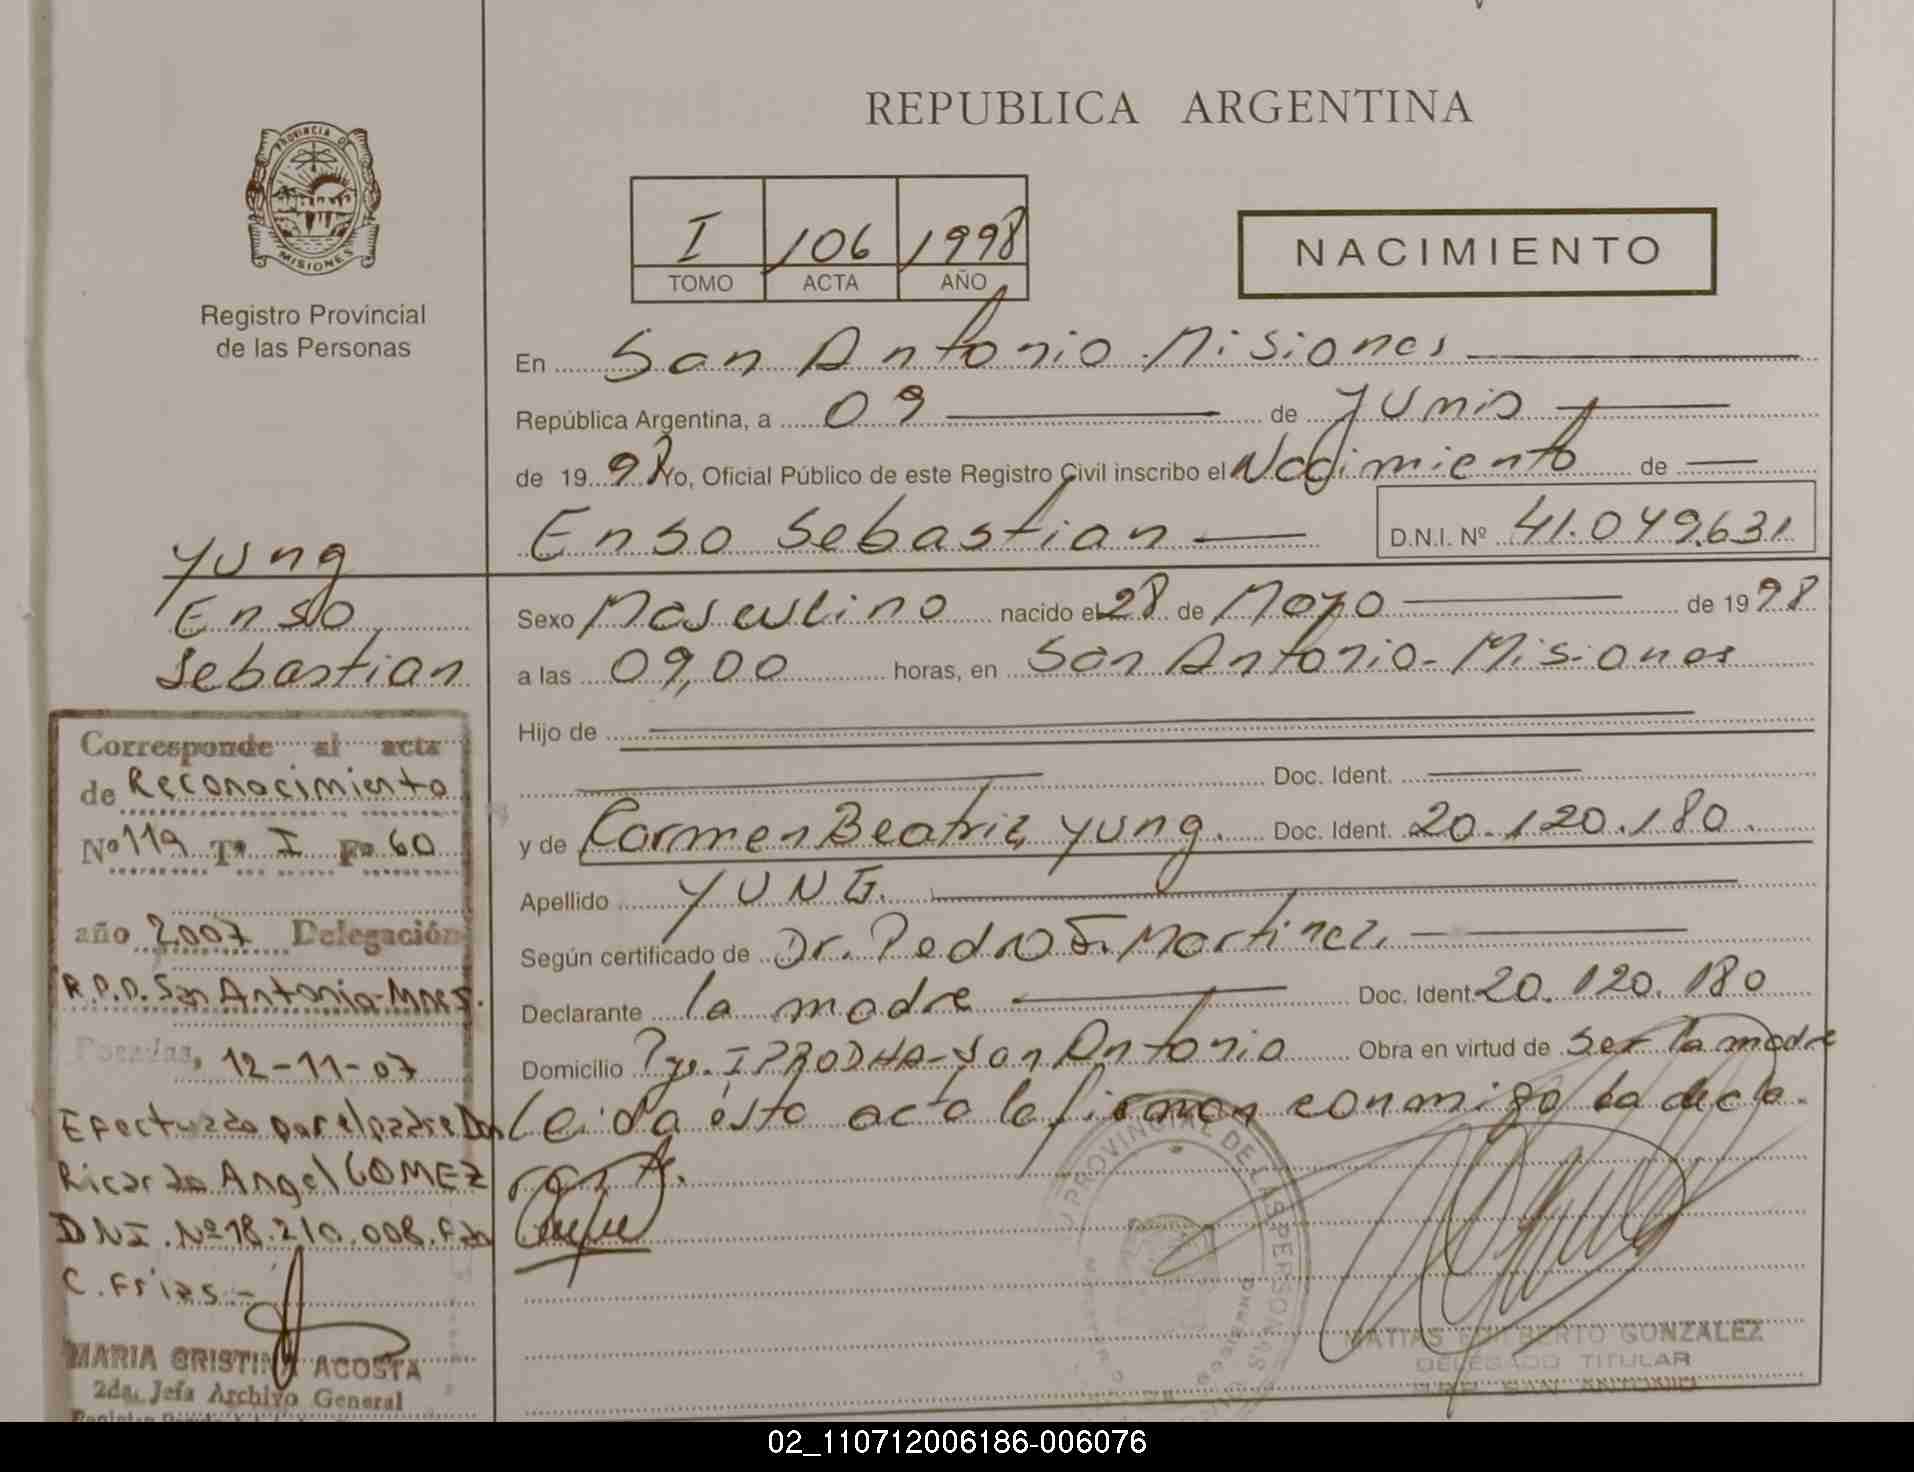 REPUBLICA ARGENTINA
PROVINCIA DE
MISIONES
Registro Provincial
de las Personas
I 106 1998
TOMO ACTA AÑO
NACIMIENTO
En San Antonio Misiones
República Argentina, a 09 de Junio
de 19 98 Yo, Oficial Público de este Registro Civil inscribo el Nacimiento de
Enso Sebastian D.N.I. Nº 41.049.631
Yung
Enso
Sebastian
Sexo Masculino nacido el 28 de Mayo de 19 98
a las 09,00 horas, en San Antonio - Misiones
Hijo de
Doc. Ident.
y de Carmen Beatriz Yung. Doc. Ident. 20.120.180.
Apellido YUNG.
Según certificado de Dr. Pedro G. Martinez.
Declarante la madre Doc. Ident. 20.120.180
Domicilio IPRODHA - San Antonio Obra en virtud de ser la madre
Leida ésta acta la firman conmigo la decla-
rante.
Corresponde al acta
de Reconocimiento
Nº 119 Tº I Fº 60
año 2007 Delegación
R.P.P. San Antonio-Mnes.
Posadas, 12-11-07
Efectuado por el padre Don
Ricardo Angel GOMEZ
DNI. Nº 18.210.008. Fdo
C. Frias.-
MARIA CRISTINA ACOSTA
2da. Jefa Archivo General
PROVINCIAL DE LAS PERSONAS
MATIAS EDILBERTO GONZALEZ
DELEGADO TITULAR
R.P.P. SAN ANTONIO
02_110712006186-006076